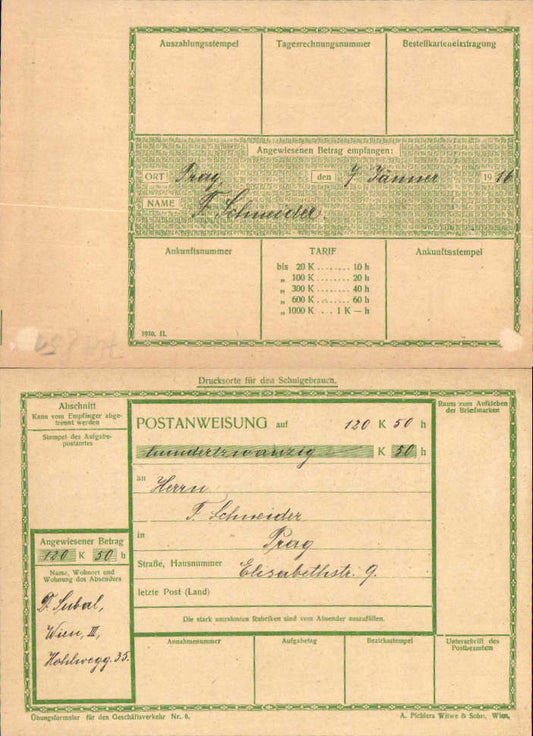 Auszahlungsstempel
Tagesrechnungsnummer
Bestellkarteneintragung
Angewiesenen Betrag empfangen:
ORT Prag, den 7. Jänner 1916
NAME F. Schneider.
Ankunftsnummer
TARIF
Ankunftsstempel
bis 20 K ........ 10 h
„ 100 K ........ 20 h
„ 300 K ........ 40 h
„ 600 K ........ 60 h
„ 1000 K . . 1 K — h
1910. II.
Drucksorte für den Schulgebrauch.
Abschnitt
Kann vom Empfänger abge-
trennt werden
Stempel des Aufgabe-
postamtes
Angewiesener Betrag
120 K 50 h
Name, Wohnort und
Wohnung des Absenders
Wien, III,
Hohlwegg. 35.
POSTANWEISUNG auf 120 K 50 h
hundertzwanzig K 50 h
an Herrn
F. Schneider
in Prag
Straße, Hausnummer Elisabethstr. 9.
letzte Post (Land)
Die stark umrahmten Rubriken sind vom Absender auszufüllen.
Raum zum Aufkleben
der Briefmarken
Annahmenummer
Aufgabetag
Bezirksstempel
Unterschrift des
Postbeamten
Übungsformular für den Geschäftsverkehr Nr. 6.
A. Pichlers Witwe & Sohn, Wien.